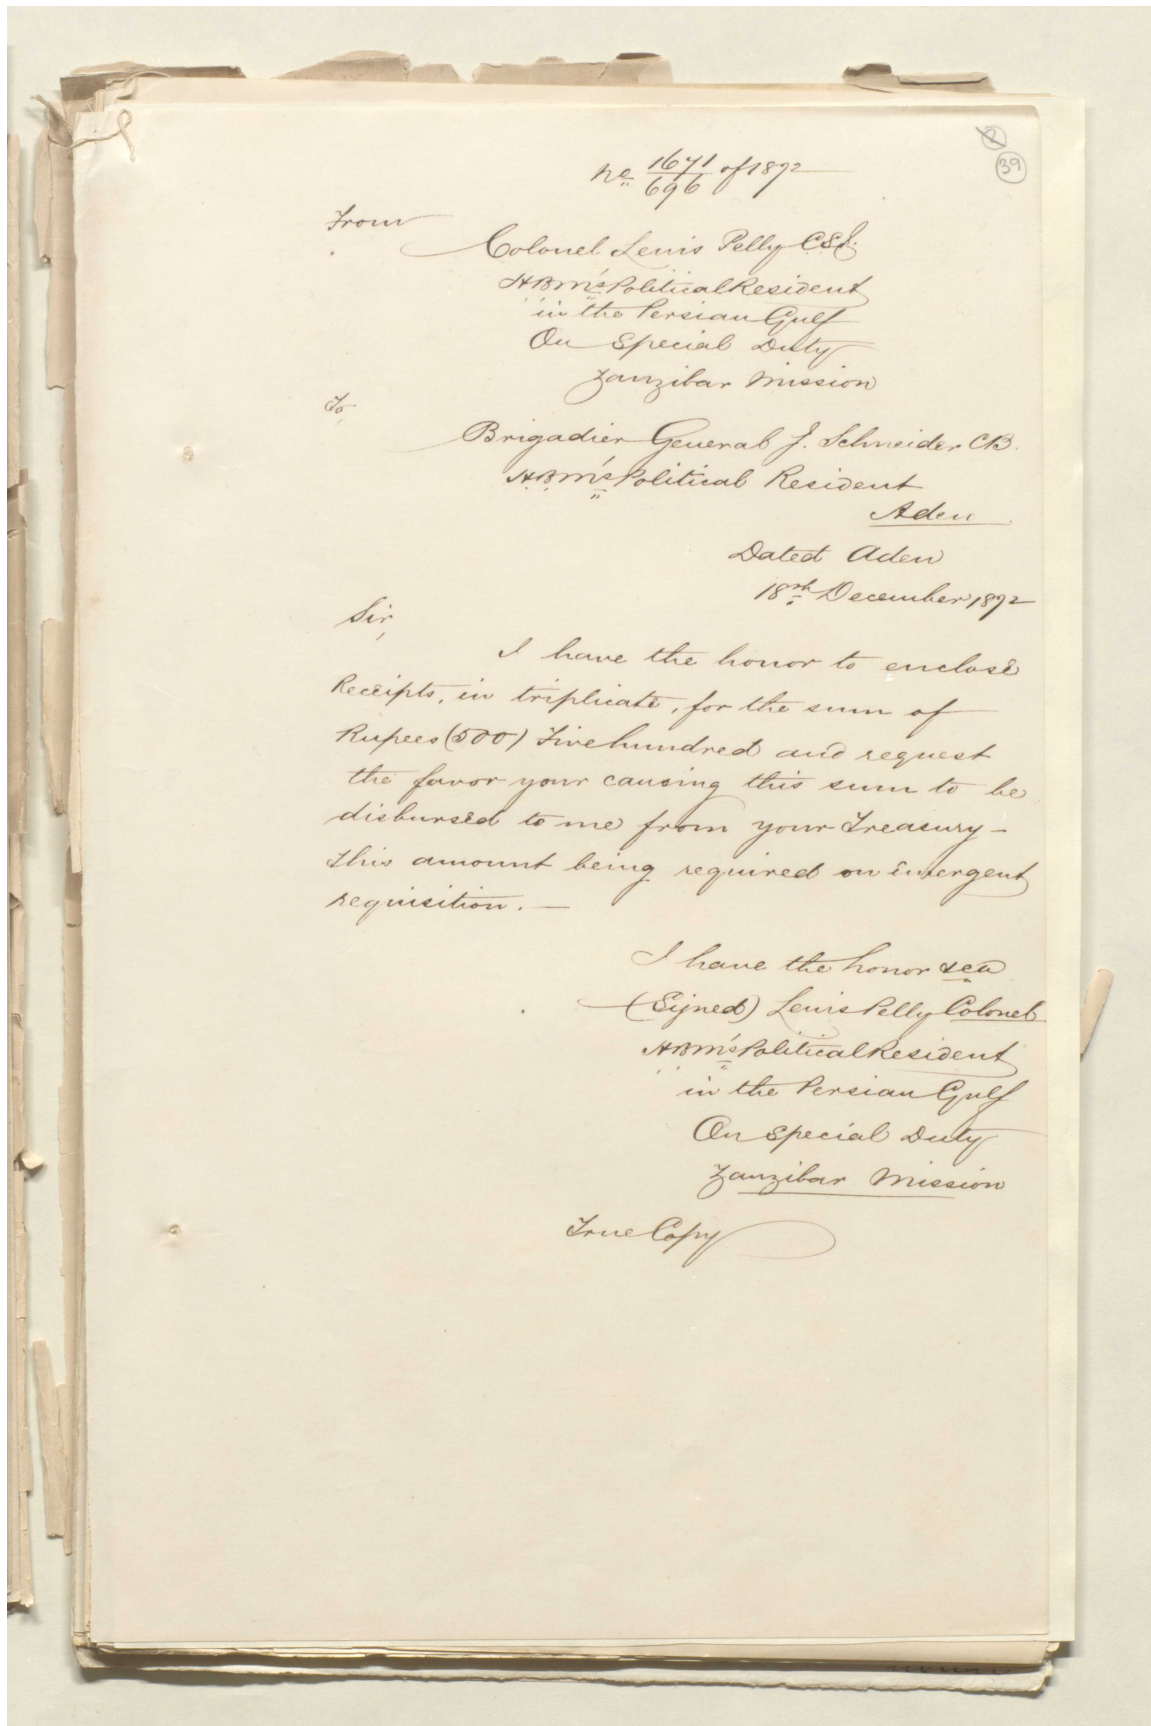 8
39
No 1671/696 of 1872
From
Colonel Lewis Pelly CSI.
HBM's Political Resident
in the Persian Gulf
On Special Duty
Zanzibar Mission
To,
Brigadier General J. Schneider CB.
H.B.M's Political Resident
Aden
Dated Aden
18th December 1872
Sir,
I have the honor to enclose
Receipts, in triplicate, for the sum of
Rupees (500) Five hundred and request
the favor your causing this sum to be
disbursed to me from your Treasury —
this amount being required on emergent
requisition. —
I have the honor &ca
(Signed) Lewis Pelly Colonel
HBM's Political Resident
in the Persian Gulf
On Special Duty
Zanzibar Mission
True Copy